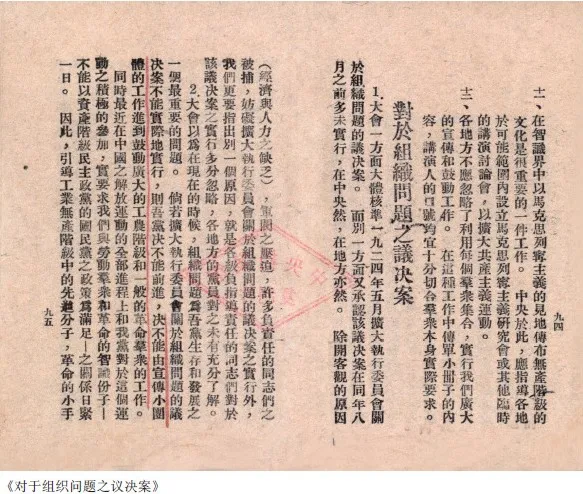 十一、在智識界中以馬克思列寧主義的見地傳布無產階級的
文化是很重要的一件工作。　中央於此，應指導各地
於可能範圍內設立馬克思列寧主義研究會或其他臨時
的講演討論會，以擴大共產主義運動。
十二、各地方不應忽略了利用每個羣衆集合，實行我們廣大
的宣傳和鼓動工作。　在這種工作中傳單小冊子的內
容，講演人的口號均宜十分切合羣衆本身實際要求。
對於組織問題之議決案
1.大會一方面大體核準一九二四年五月擴大執行委員會關
於組織問題的議決案。　而別一方面又承認該議決案在同年八
月之前多未實行，在中央然，在地方亦然。　除開客觀的原因
九四
（經濟與人力之缺乏），軍閥之壓迫，許多負責任的同志們之
被捕，妨礙擴大執行委員會關於組織問題的議決案之實行外，
我們更要指出別一個原因，就是各級負指導責任的同志們對於
該議決案之實行多分忽略，各地方的黨員對之未有充分了解。
2.大會以爲在現在的時候，組織問題爲吾黨生存和發展之
一個最重要的問題。　倘若擴大執行委員會關於組織問題的議
決案不能實際地實行，則吾黨決不能前進，決不能由宣傳小團
體的工作進到鼓動廣大的工農階級和一般的革命羣衆的工作。
同時最近在中國之解放運動的全部進程上和我黨對於這個運
動之積極的參加，實要求我們與勞動羣衆和革命的智識份子—
不能以資產階級民主政黨的國民黨之政策爲滿足—之關係日緊
一日。　因此，引導工業無產階級中的先趨分子，革命的小手
九五
《对于组织问题之议决案》